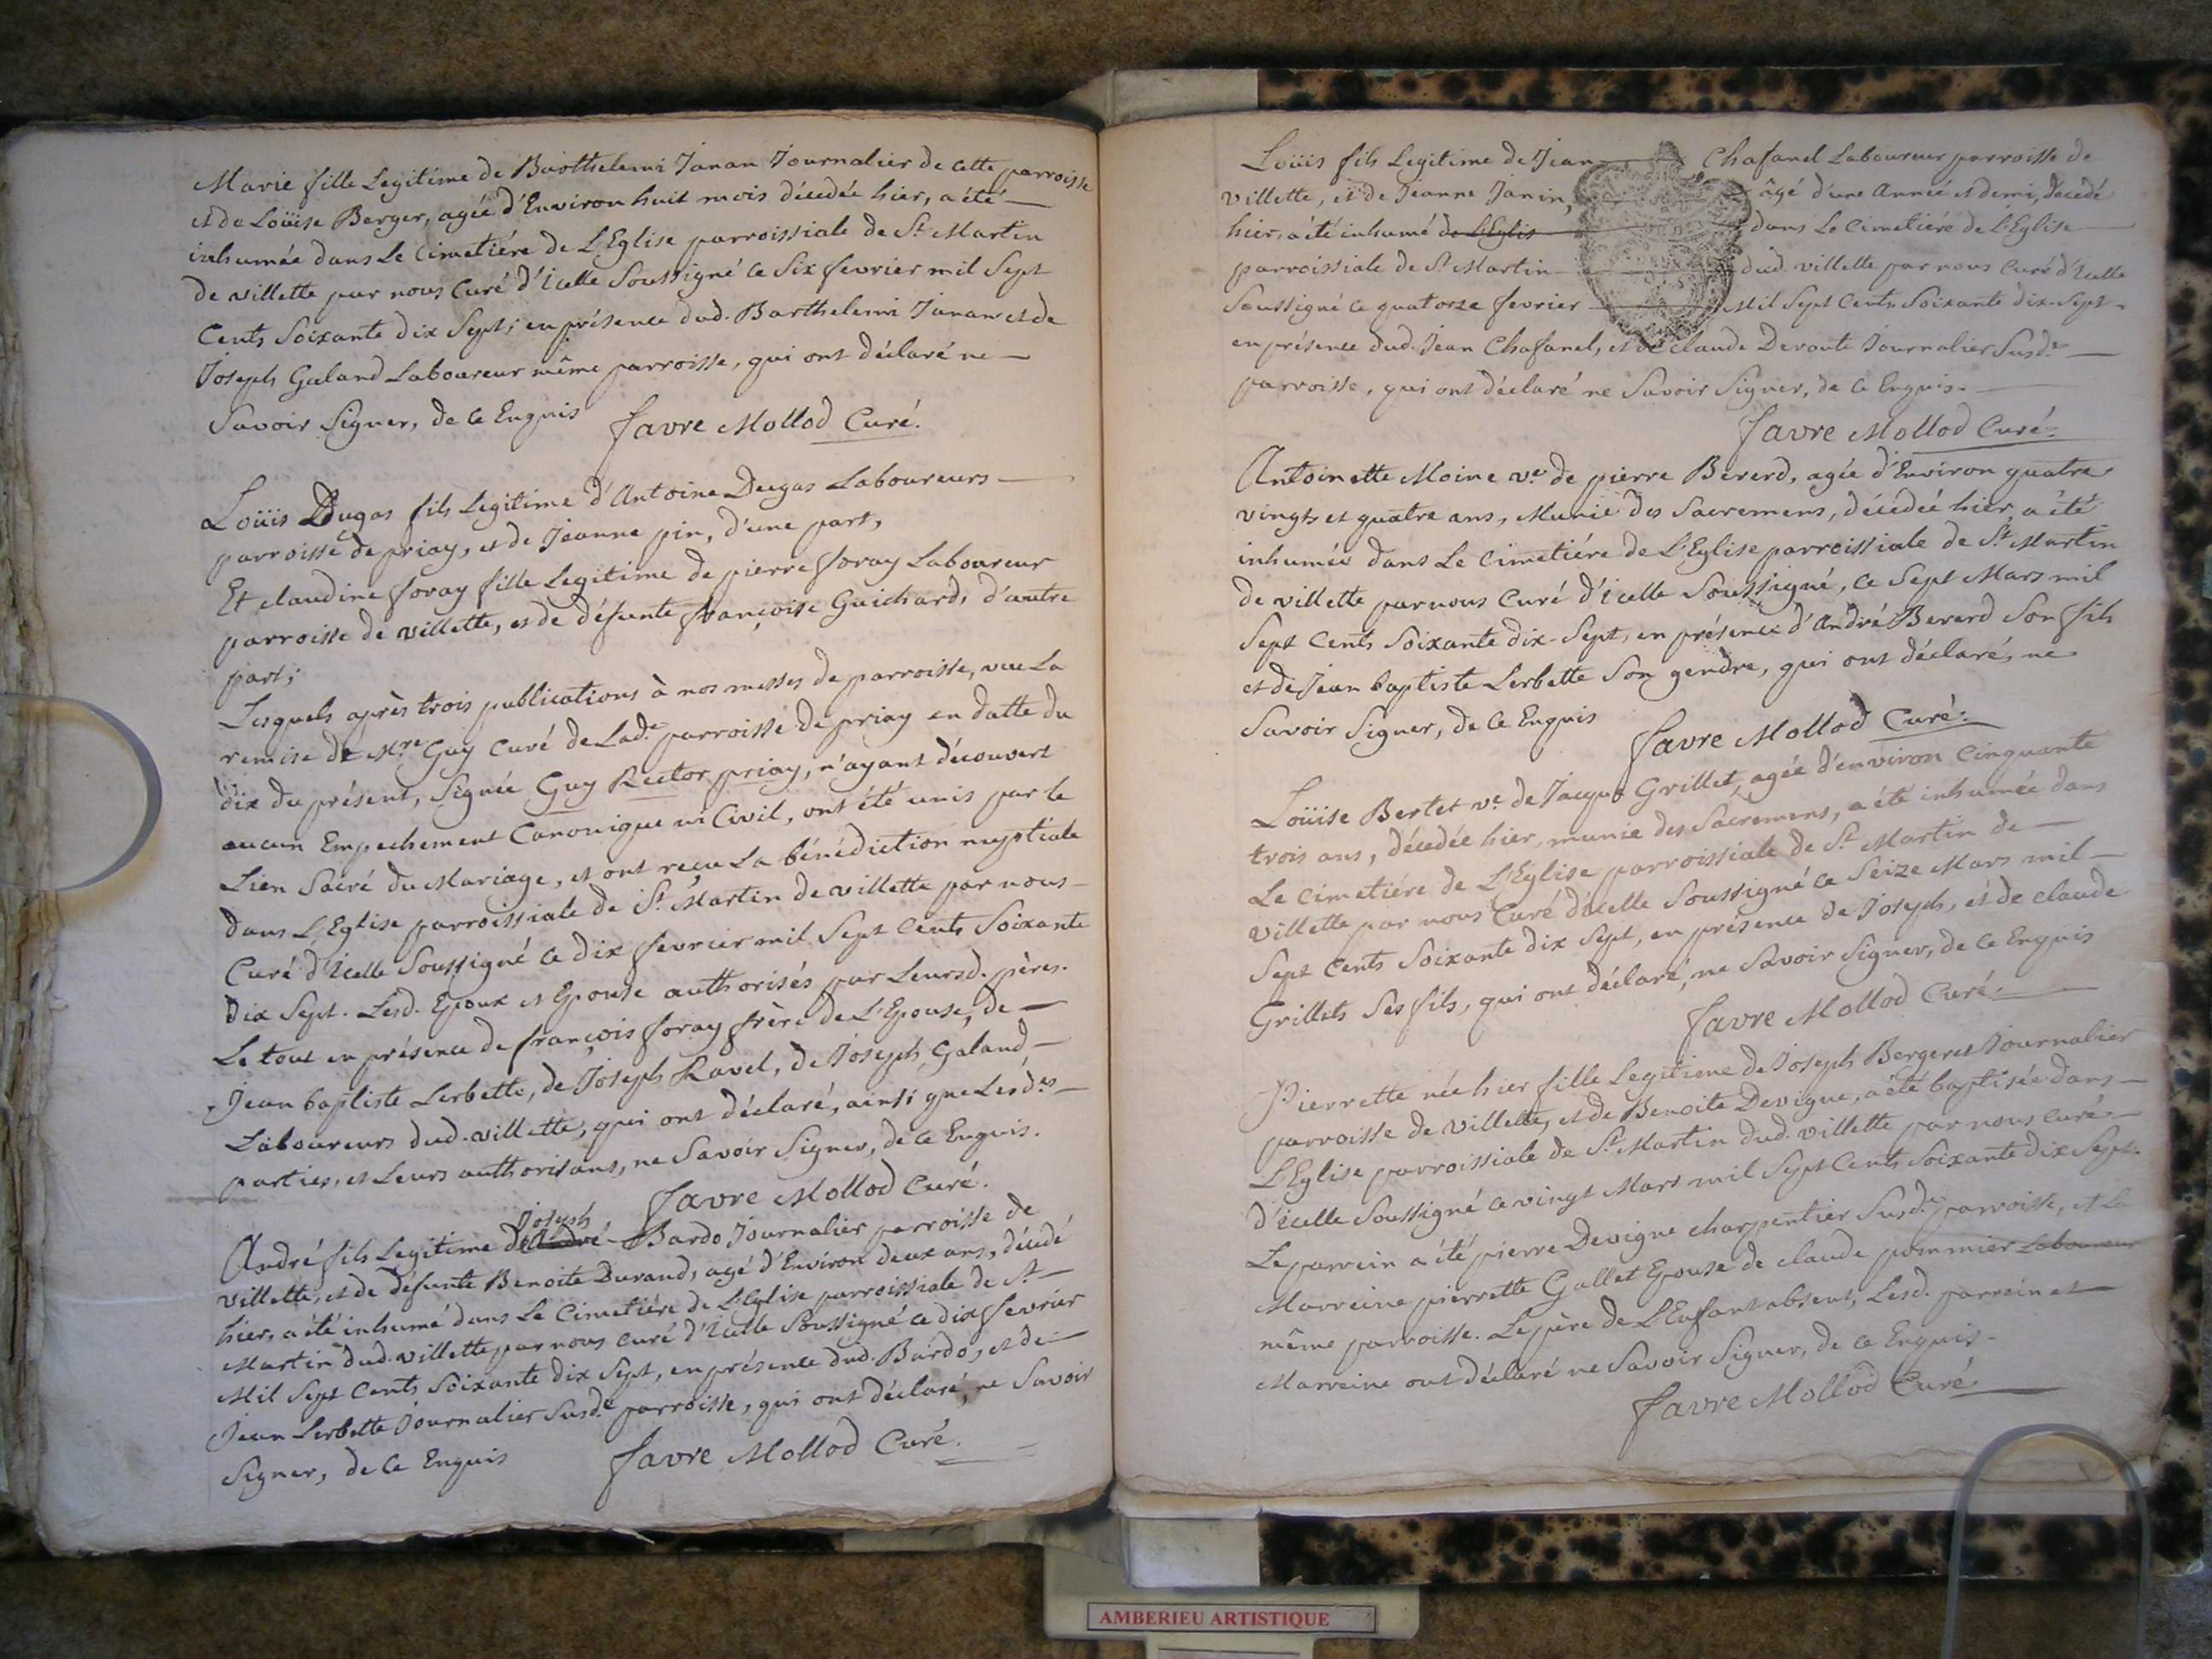 Marie fille Legitime de Barthelemi Janan Journalier de cette parroisse
et de Loüise Berger, agée d'Environ huit mois décedée hier, a été
inhumée dans Le Cimetiére de L'Eglise parroissiale de St. Martin
de villette par nous Curé d'Icelle Soussigné ce Six fevrier mil Sept
Cents Soixante dix Sept; en présence dud. Barthelemi Janan et de
Joseph Galand Laboureur même parroisse, qui ont déclaré ne
Savoir Signer, de ce Enquis
Favre Mollod Curé.
Loüis Dugas fils Legitime d'Antoine Dugas Laboureurs
parroisse de priay, et de Jeanne pin, d'une part,
Et claudine foray fille Legitime de pierre foray Laboureur
parroisse de villette, et de défunte françoise Guichard, d'autre
part;
Lesquels après trois publications à nos messes de parroisse, vue La
remise de Mre. Guy Curé de Lade. parroisse de priay en datte du
dix du présent, Signée Guy Rector priay, n'ayant découvert
aucun Empechement Canonique ni Civil, ont été unis par le
Lien Sacré du Mariage, et ont reçu La bénédiction nuptiale
dans L'Eglise parroissiale de St. Martin de villette par nous
Curé d'Icelle Soussigné ce dix fevrier mil Sept Cents Soixante
dix Sept. Lesd. Epoux et Epouse authorisés par Leursd. pères.
Le tout en présence de françois foray frère de L'Epouse, de
Jean baptiste Lerbette, de Joseph Ravel, de Joseph Galand
Laboureurs dud. villette, qui ont déclaré, ainsi que Lesdes.
parties, et Leurs authorisans, ne Savoir Signer, de ce Enquis.
Favre Mollod Curé.
Joseph
André fils Legitime de André Bardo Journalier parroisse de
villette, et de défunte Benoite Durand, agé d'Environ deux ans, décedé
hier, a été inhumé dans Le Cimetiére de L'Eglise parroissiale de St.
Martin dud. villette par nous curé d'Icelle Soussigné ce dix fevrier
Mil Sept Cents Soixante dix Sept, en présence dud. Bardo, et de
Jean Lerbette Journalier Susde. parroisse, qui ont déclaré, ne Savoir
Signer, de ce Enquis
Favre Mollod Curé.
Loüis fils Legitime de Jean Chafanel Laboureur parroisse de
villette, et de Jeanne Janin, âgé d'une Année et demi, decedé
hier, a été inhumé de L'Eglis dans Le Cimetiére de L'Eglise
parroissiale de St. Martin dud. villette par nous Curé d'Icelle
Soussigné ce quatorze fevrier Mil Sept Cents Soixante dix-Sept
en présence dud. Jean Chafanel, et de claude Devoute Journalier Susde.
parroisse, qui ont déclaré ne Savoir Signer, de ce Enquis.
Favre Mollod Curé.
Antoinette Moine ve. de pierre Bererd, agée d'Environ quatre
vingts et quatre ans, Munie des Sacremens, décédée hier a été
inhumée dans Le Cimetiére de L'Eglise parroissiale de St. Martin
de villette par nous Curé d'Icelle Soussigné, ce Sept Mars mil
Sept Cents Soixante dix-Sept, en présence d'André Bererd Son fils
et de Jean baptiste Lerbette Son gendre, qui ont déclaré, ne
Savoir Signer, de ce Enquis
Favre Mollod Curé.
Loüise Bertet ve. de Jacque Grillet, agée d'environ Cinquante
trois ans, décedée hier, munie des Sacremens, a été inhumée dans
Le Cimetiére de L'Eglise parroissiale de St. Martin de
villette par nous Curé d'icelle Soussigné ce Seize Mars mil
Sept Cents Soixante dix Sept, en présence de Joseph, et de claude
Grillets Ses fils, qui ont déclaré, ne Savoir Signer, de ce Enquis
Favre Mollod Curé.
Pierrette née hier fille Legitime de Joseph Bergeret Journalier
parroisse de villette, et de Benoite Devigne, a été baptisée dans
L'Eglise parroissiale de St. Martin dud. villette par nous curé
d'Icelle Soussigné ce vingt Mars mil Sept Cents Soixante dix Sept.
Le parrein a été pierre Devigne charpentier Susde. parroisse, et La
Marreine pierrette Gallet Epouse de claude pommier Laboureur
même parroisse. Le père de L'Enfant absent, Lesd. parrein et
Marreine ont déclaré ne Savoir Signer, de ce Enquis.
Favre Mollod Curé
AMBERIEU ARTISTIQUE